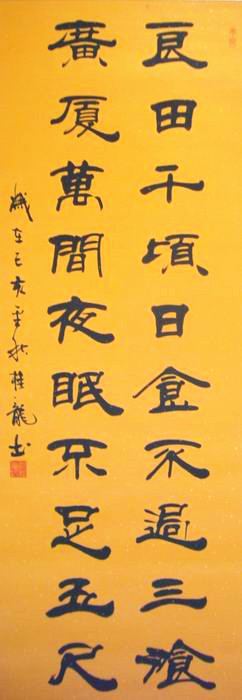 良田千頃日食不過三飡
廣厦萬間夜眠不足五尺
歲在乙亥孟秋桂龍书